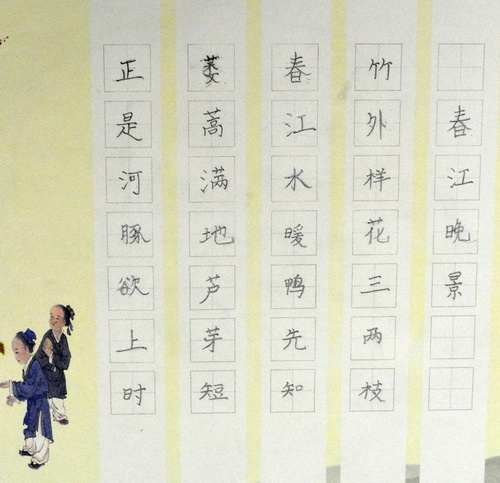 春江晚景
竹外样花三两枝
春江水暖鸭先知
蒌蒿满地芦芽短
正是河豚欲上时